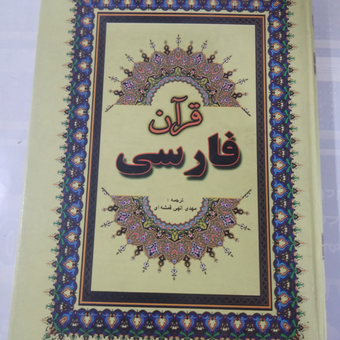 قرآن
فارسی
ترجمه :
مهدی الهی قمشه ای